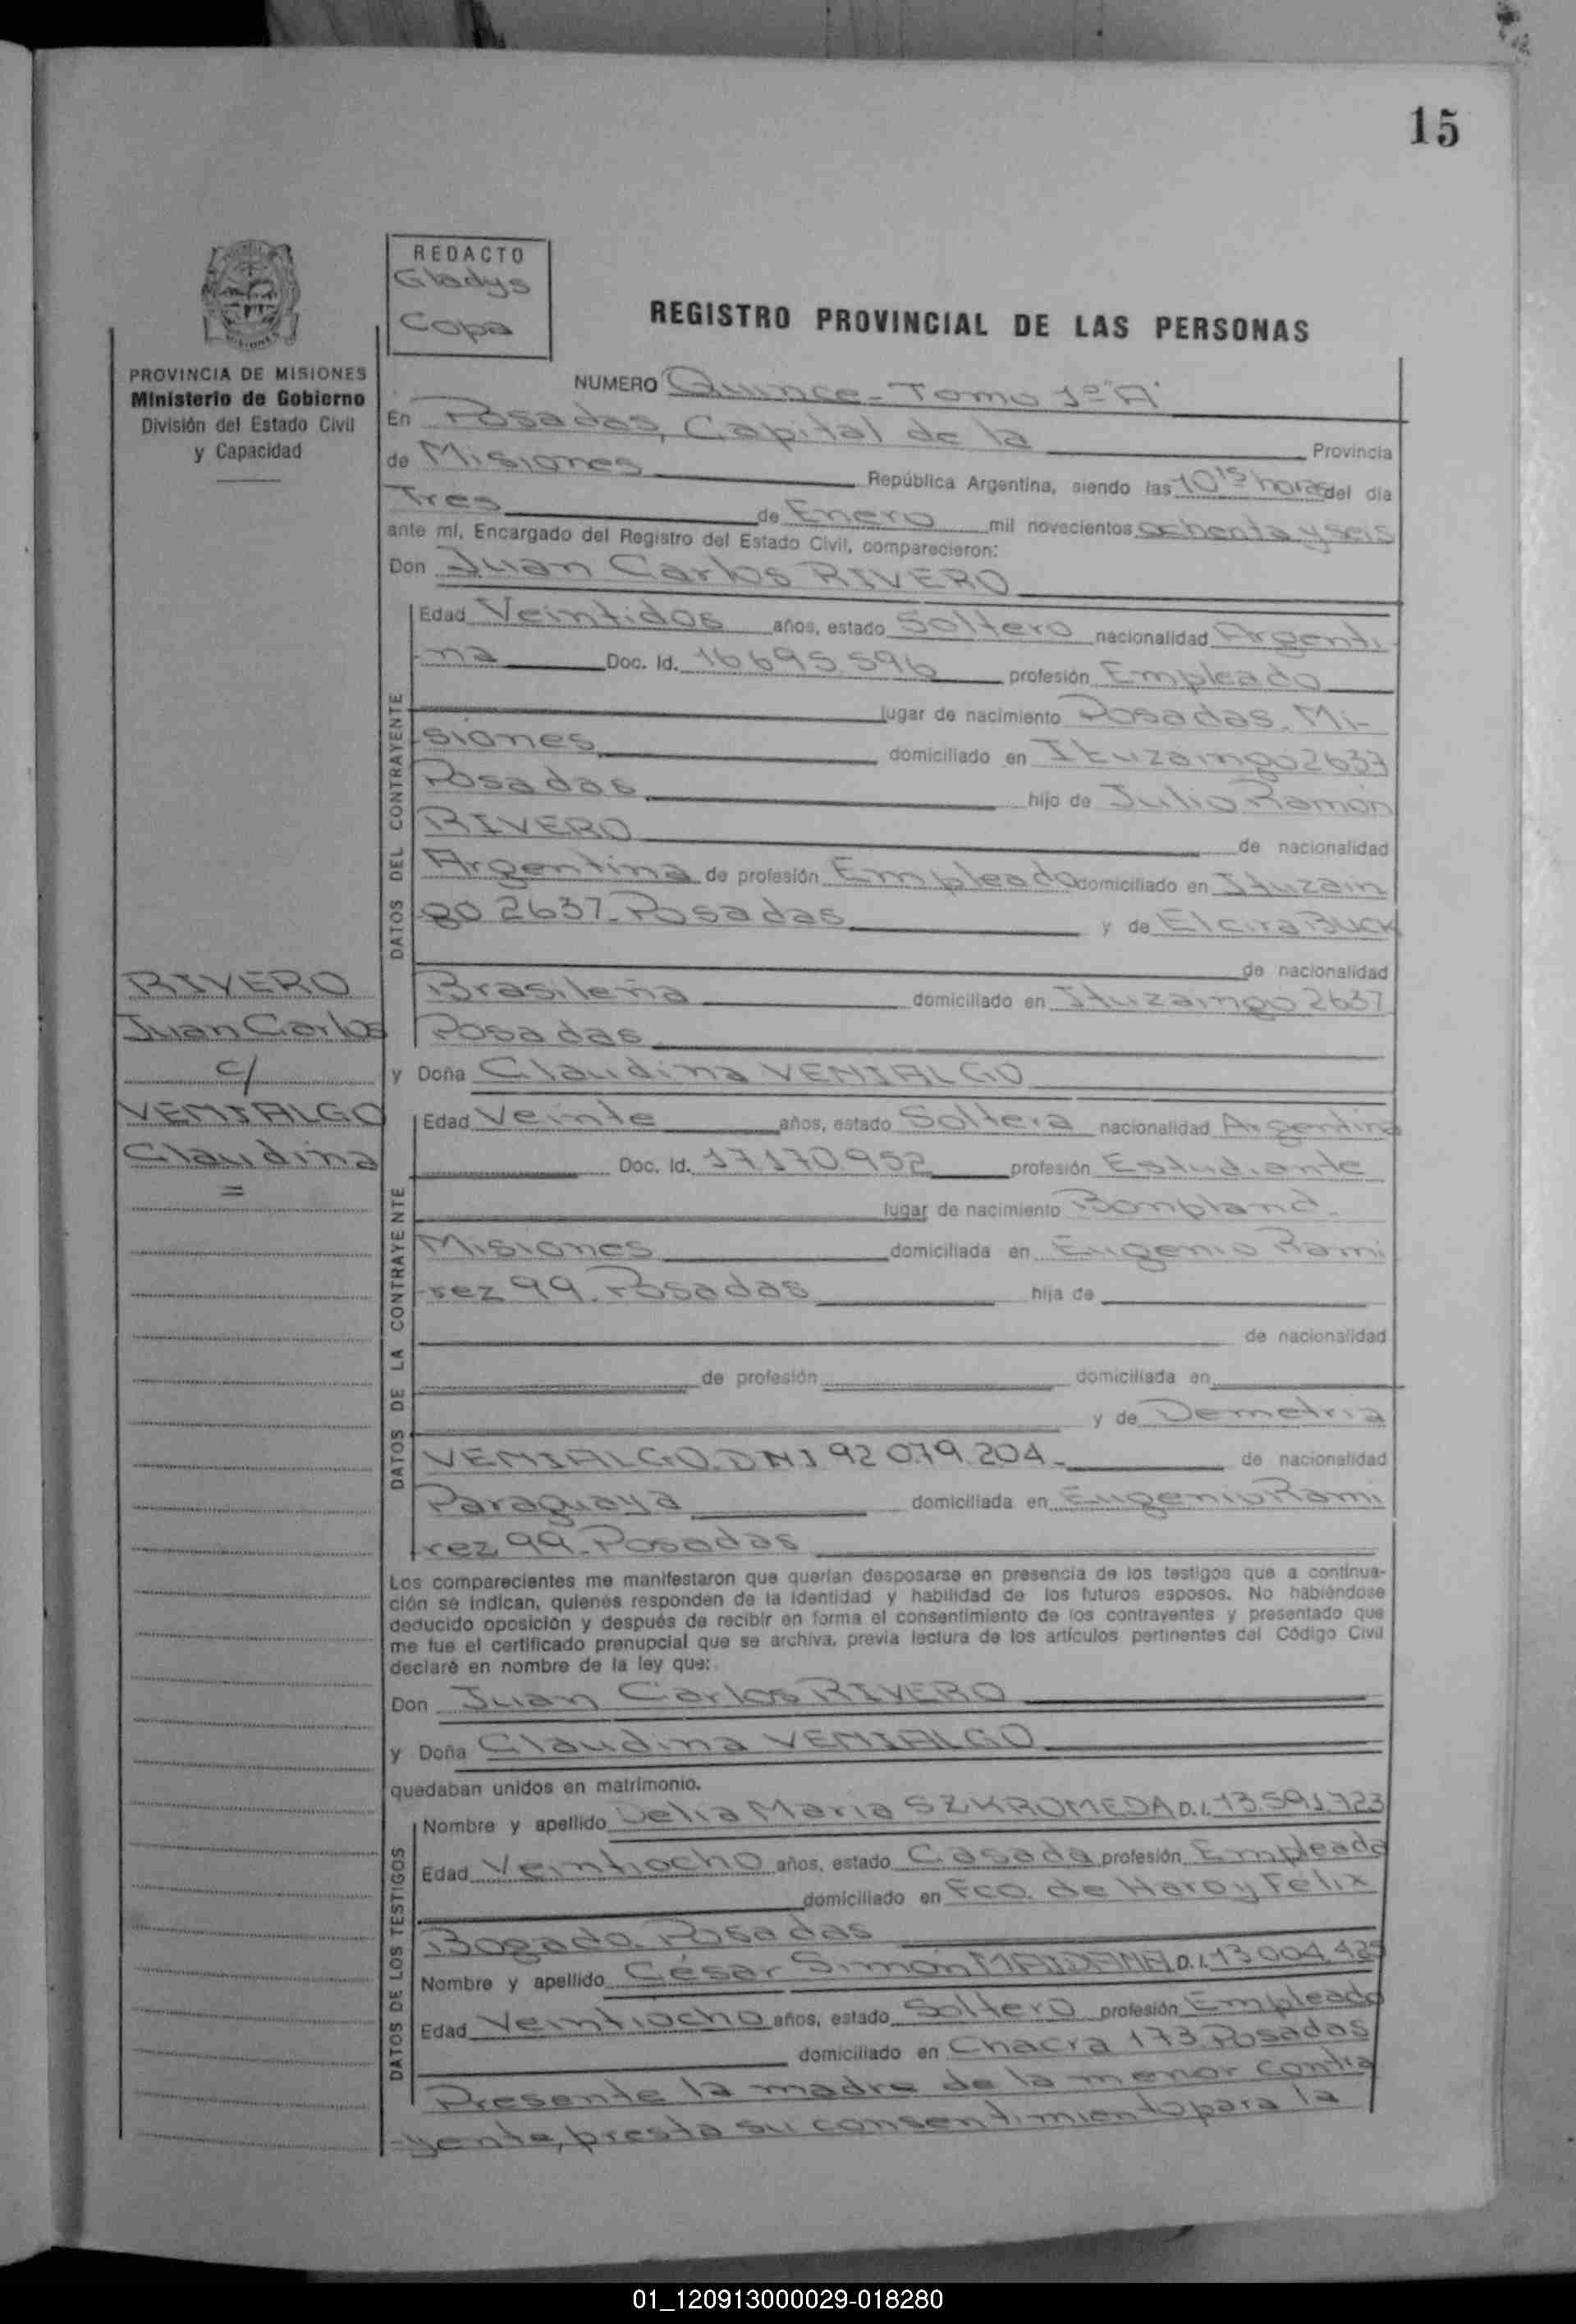 15
REDACTO
Gladys
Copa
REGISTRO PROVINCIAL DE LAS PERSONAS
PROVINCIA DE MISIONES
Ministerio de Gobierno
División del Estado Civil
y Capacidad
NUMERO Quince - Tomo 1º "A"
En Posadas, Capital de la Provincia
de Misiones República Argentina, siendo las 10 15 horas del día
Tres de Enero mil novecientos ochenta y seis
ante mí, Encargado del Registro del Estado Civil, comparecieron:
Don Juan Carlos RIVERO
DATOS DEL CONTRAYENTE
Edad Veintidos años, estado Soltero nacionalidad Argenti-
na Doc. Id. 16695.596 profesión Empleado
lugar de nacimiento Posadas. Mi-
siones domiciliado en Ituzaingo 2637
Posadas hijo de Julio Ramón
RIVERO de nacionalidad
Argentina de profesión Empleado domiciliado en Ituzain
go 2637. Posadas y de Elcira BUCK
de nacionalidad
Brasileña domiciliado en Ituzaingo 2637
Posadas
RIVERO
Juan Carlos
c/
VENIALGO
Claudina
=
y Doña Claudina VENIALGO
DATOS DE LA CONTRAYENTE
Edad Veinte años, estado Soltera nacionalidad Argentina
Doc. Id. 17.170.952 profesión Estudiante
lugar de nacimiento Bompland.
Misiones domiciliada en Eugenio Rami
rez 99. Posadas hija de
de nacionalidad
de profesión domiciliada en
y de Demetria
VENIALGO. DNI 92.079.204 - de nacionalidad
Paraguaya domiciliada en Eugenio Rami
rez 99. Posadas
Los comparecientes me manifestaron que querían desposarse en presencia de los testigos que a continua-
ción se indican, quienes responden de la identidad y habilidad de los futuros esposos. No habiéndose
deducido oposición y después de recibir en forma el consentimiento de los contrayentes y presentado que
me fue el certificado prenupcial que se archiva, previa lectura de los artículos pertinentes del Código Civil
declaré en nombre de la ley que:
Don Juan Carlos RIVERO
y Doña Claudina VENIALGO
quedaban unidos en matrimonio.
DATOS DE LOS TESTIGOS
Nombre y apellido Delia Maria SZKROMEDA D.I. 13.591.723
Edad Veintiocho años, estado Casada profesión Empleada
domiciliado en Fco. de Haro y Félix
Bogado. Posadas
Nombre y apellido César Simón MAIDANA D.I. 13.004.425
Edad Veintiocho años, estado Soltero profesión Empleado
domiciliado en Chacra 173. Posadas
Presente la madre de la menor contra
yente, presta su consentimiento para la
01_120913000029-018280